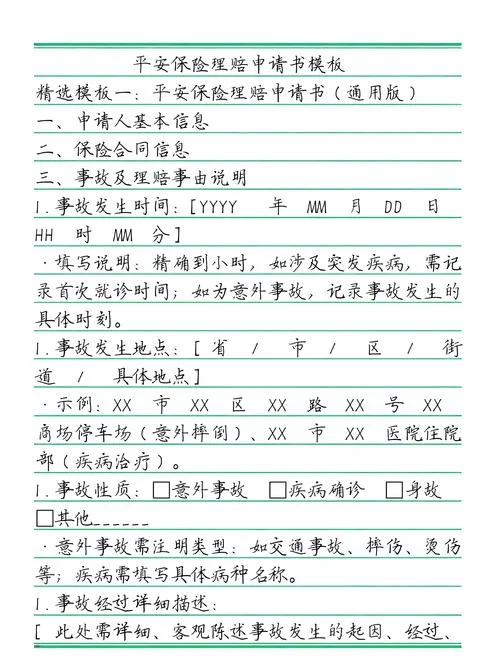 平安保险理赔申请书模板
精选模板一：平安保险理赔申请书（通用版）
一、申请人基本信息
二、保险合同信息
三、事故及理赔事由说明
1.事故发生时间：[YYYY 年 MM 月 DD 日
HH 时 MM 分]
·填写说明：精确到小时，如涉及突发疾病，需记
录首次就诊时间；如为意外事故，记录事故发生的
具体时刻。
1.事故发生地点：[ 省 / 市 / 区 / 街
道 / 具体地点]
·示例：XX 市 XX 区 XX 路 XX 号 XX
商场停车场（意外摔倒）、XX 市 XX 医院住院
部（疾病治疗）。
1.事故性质：□意外事故 □疾病确诊 □身故
□其他______
·意外事故需注明类型：如交通事故、摔伤、烫伤
等；疾病需填写具体病种名称。
1.事故经过详细描述：
[ 此处需详细、客观陈述事故发生的起因、经过、